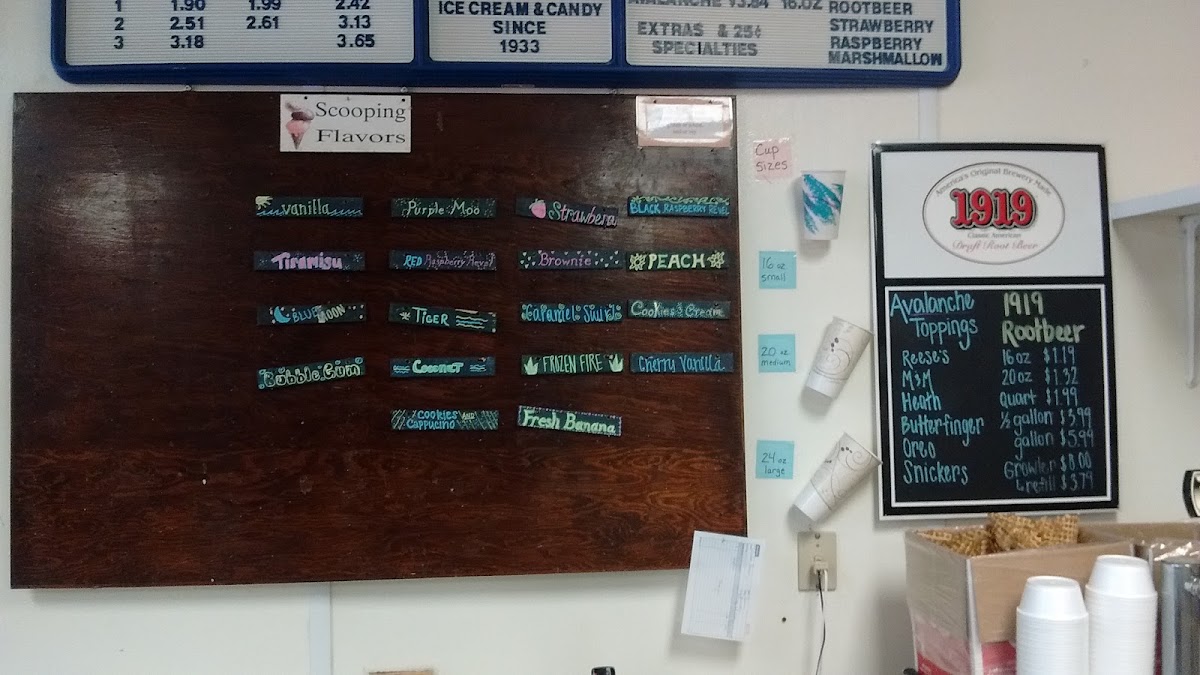 1 1.90 1.99 2.42
2 2.51 2.61 3.13
3 3.18 3.65
ICE CREAM & CANDY
SINCE
1933
AVALANCHE 16OZ
EXTRAS & 25¢
SPECIALTIES
ROOTBEER
STRAWBERRY
RASPBERRY
MARSHMALLOW
Scooping
Flavors
vanilla
Purple Moo
Strawbera
BLACK RASPBERRY REVEL
Tiramisu
RED Raspberry Revel
Brownie
PEACH
BLUE MOON
TIGER
Caramel
Cookies & Cream
Bubble Gum
Coconut
FROZEN FIRE
Cherry Vanilla
Cookies AND
Cappucino
Fresh Banana
Cup
sizes
16 oz
small
20 oz
medium
24 oz
large
America's Original Brewery Made
1919
Classic American
Draft Root Beer
Avalanche
Toppings
Reese's
M&M
Heath
Butterfinger
Oreo
Snickers
1919
Rootbeer
16oz $1.19
20oz $1.32
Quart $1.99
½ gallon $3.99
gallon $5.99
Growler $8.00
refill $3.79